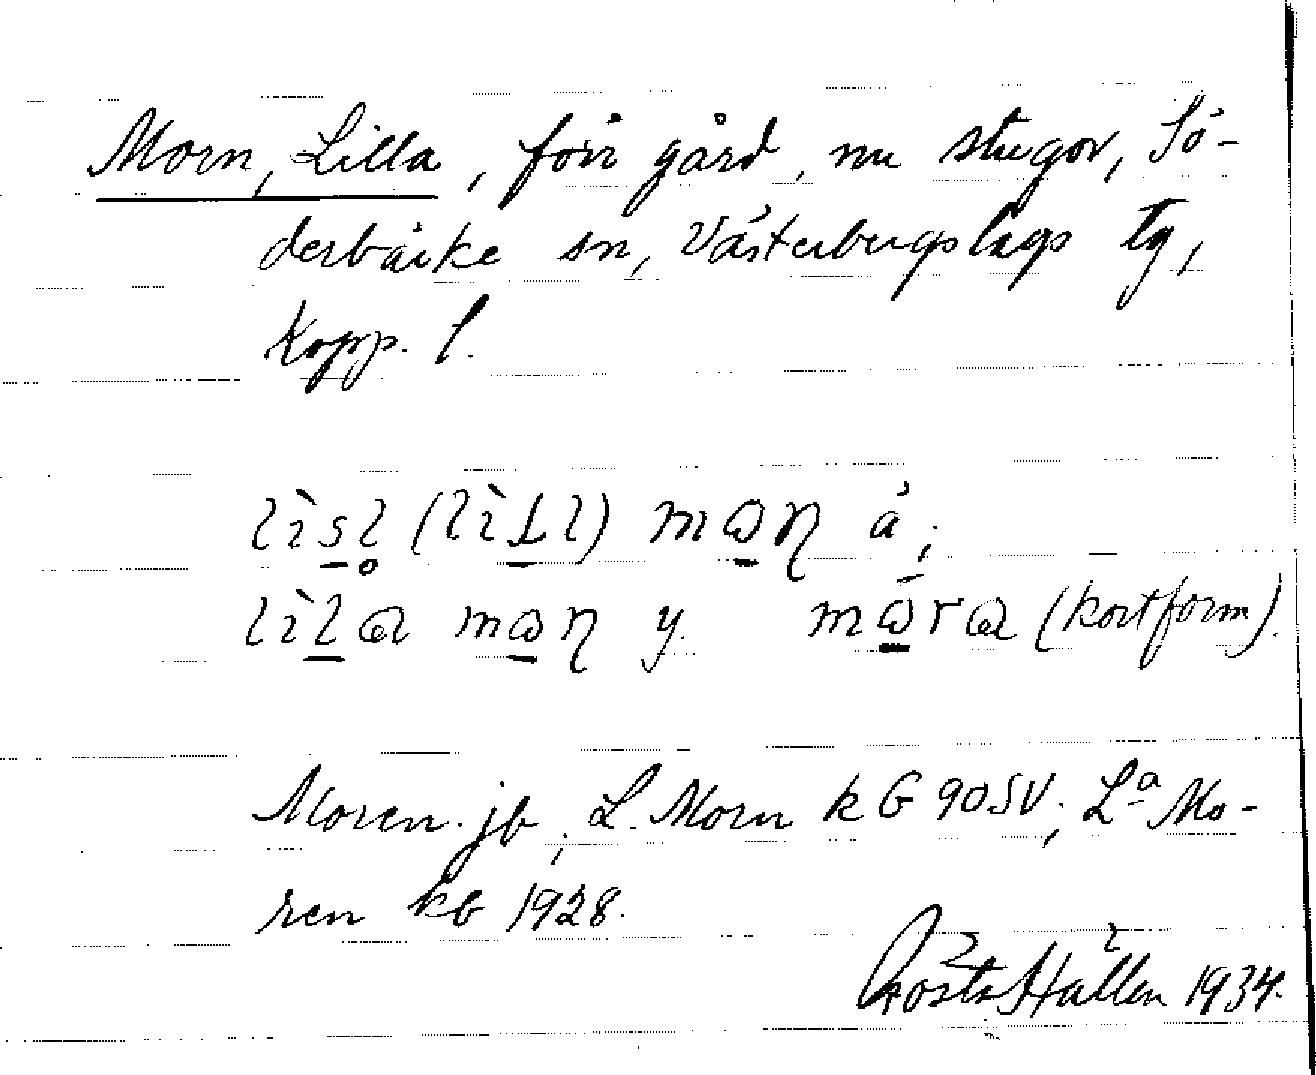 Morn, Lilla, förr gård, nu stugor, Sö-
derbärke sn, Västerbergslags tg,
Kopp. l.
å;
y. (kortform).
Moren jb; L. Morn k G 90SV; La Mo-
ren kb 1928.
Gösta Hallén 1934.